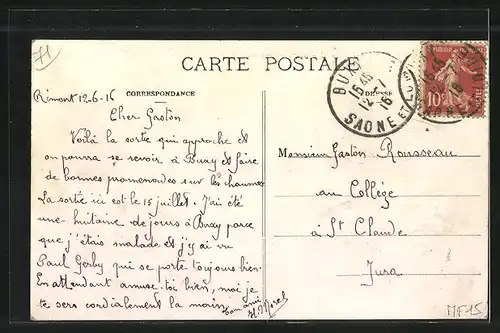 71
CARTE POSTALE
CORRESPONDANCE
ADRESSE
BUX
15 45
12 - 7
16
SAONE ET L
10c
Rimont 12-6-16
Cher Gaston
Voilà la sortie qui approche et
on pourra se revoir à Buxy et faire
de bonnes promenades sur les chaumes
La sortie ici est le 15 juillet. J'ai été
une huitaine de jours à Buxy parce
que j'étais malade et j'y ai vu
Paul Gerby qui se porte toujours bien.
En attendant amuse-toi bien, moi je
te serre cordialement la main
Ton ami
Monsieur Gaston Rousseau
au Collège
à St Claude
Jura
MF15